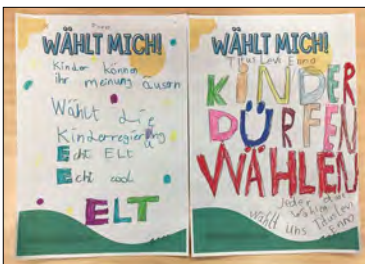 WÄHLT MICH!
Kinder können
ihr meinung äusern
Wählt die
Kinderregierung
Echt ELT
Echt cool
ELT
WÄHLT MICH!
Titus Levi Enno
KINDER
DÜRFEN
WÄHLEN
Jeder
wählen
Wählt uns Titus Levi
Enno